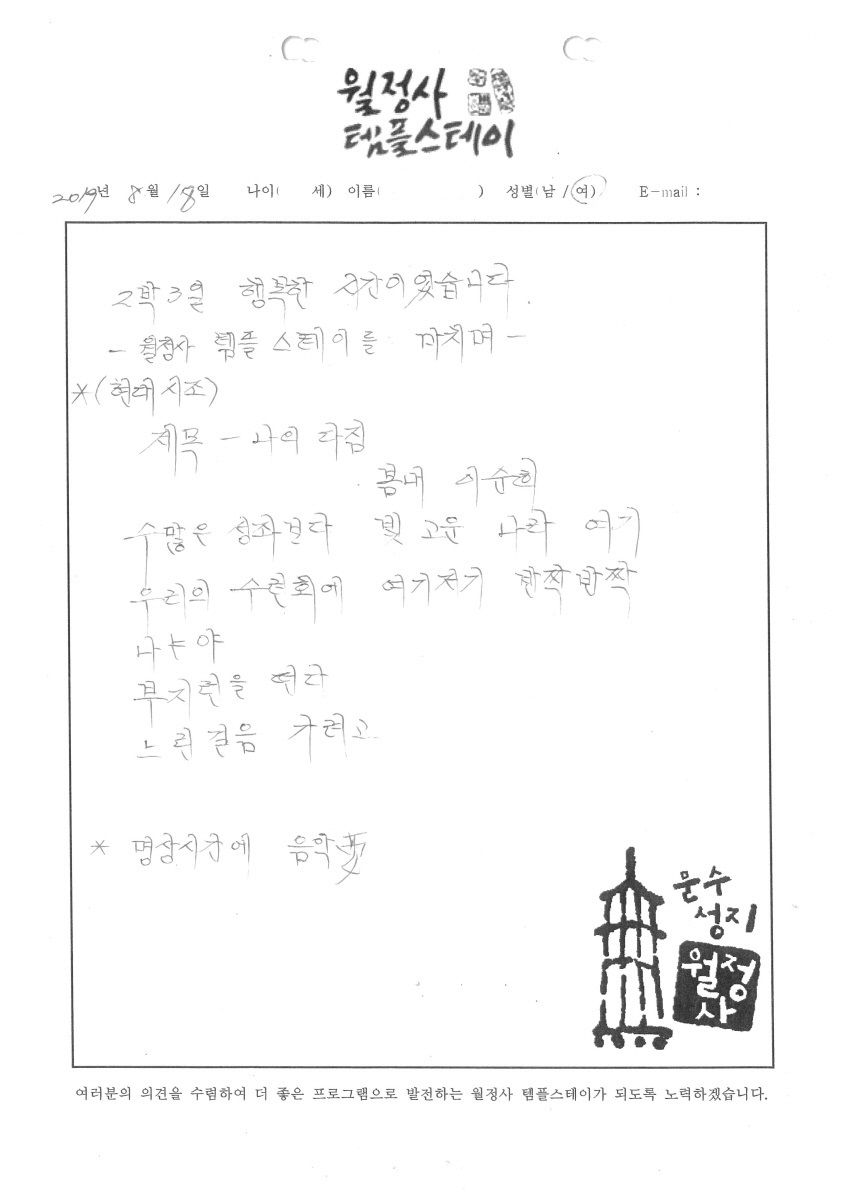 월정사
템플스테이
2019년 8월 18일 나이( 세) 이름( ) 성별(남 / 여) E-mail :
2박 3일 행복한 시간이였습니다.
- 월정사 템플 스테이를 마치며 -
*(현대시조)
제목 - 나의 다짐
봄내 이순희
수많은 성좌보다 빛 고운 나라 여기
우리의 수련회에 여기저기 반짝반짝
나는야
부지런을 떤다
느린 걸음 가려고
* 명상시간에 음악
문수
성지
월정
사
여러분의 의견을 수렴하여 더 좋은 프로그램으로 발전하는 월정사 템플스테이가 되도록 노력하겠습니다.